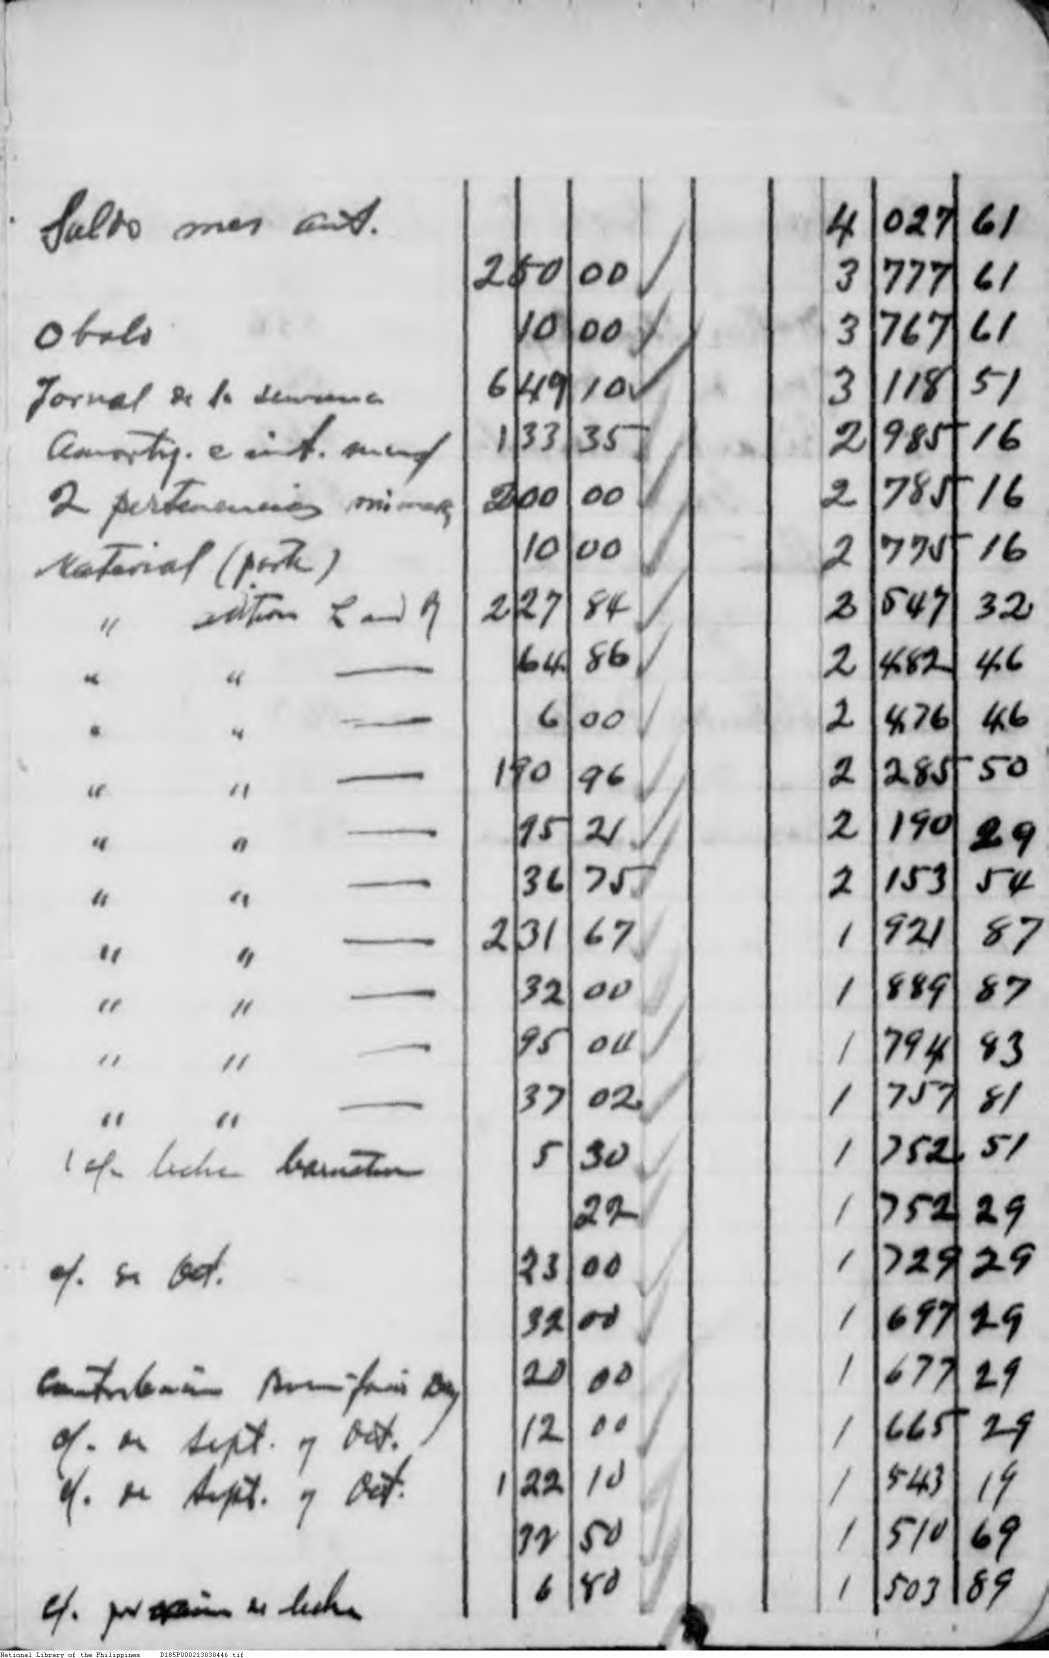 Saldo mes ant. 4 027 61
250 00 3 777 61
Obolo 10 00 3 767 61
Jornal de la semana 649 10 3 118 51
Amortiz. e int. 133 35 2 985 16
2 pertenencias mineras 200 00 2 785 16
Material (parte) 10 00 2 775 16
" L and 227 84 2 547 32
" " — 64 86 2 482 46
" " — 6 00 2 476 46
" " — 190 96 2 285 50
" " — 95 21 2 190 29
" " — 36 75 2 153 54
" " — 231 67 1 921 87
" " — 32 00 1 889 87
" " — 95 04 1 794 83
" " — 37 02 1 757 81
1 c/ leche Carnation 5 30 1 752 51
22 1 752 29
c/. de Oct. 23 00 1 729 29
32 00 1 697 29
Contribución Bonifacio Day 20 00 1 677 29
c/. de Sept. y Oct. 12 00 1 665 29
c/. de Sept. y Oct. 122 10 1 543 19
32 50 1 510 69
c/. por de leche 6 80 1 503 89
National Library of the Philippines D185P000213038446.tif